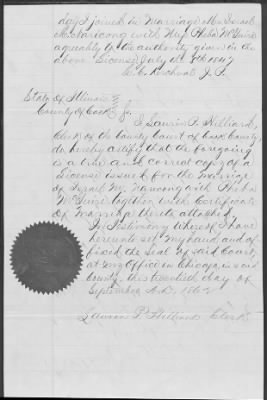 day I joined in Marriage Mr Israel
with Mrs Phebe McGuire
agreeably to the authority given in the
above License July 18th 1847
J. P.
State of Illinois
County of Cook } ss.
I Laurin P. Hilliard,
Clerk of the County Court of Cook County,
do hereby certify that the foregoing
is a true and correct copy of a
License issued for the marriage
of Israel with Phebe
McGuire together with the Certificate
of Marriage thereto attached
In Testimony Whereof I have
hereunto set my hand and af-
fixed the Seal of said County
at my Office in Chicago, in said
County, this twentieth day of
September A.D. 1862
Laurin P. Hilliard Clerk